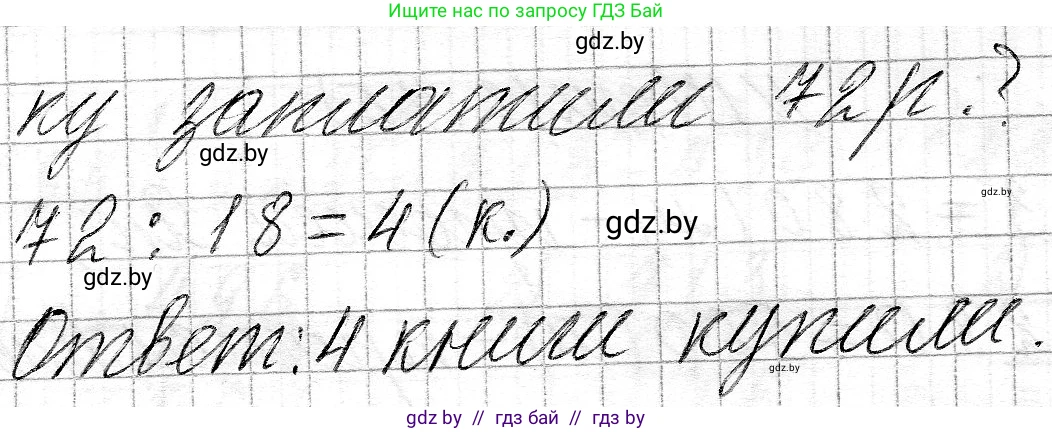 Ищите нас по запросу ГДЗ Бай
gdz.by
ку заплатили 72 р.?
gdz.by
gdz.by
72 : 18 = 4 (к.)
gdz.by
gdz.by
Ответ: 4 книги купили.
gdz.by
gdz.by // гдз бай // гдз by